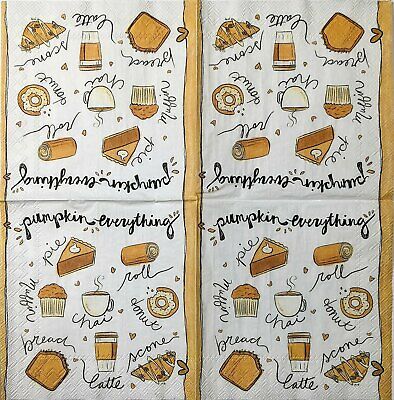 latte
scone
bread
donut
chai
muffin
roll
pie
pumpkin everything
latte
scone
bread
donut
chai
muffin
roll
pie
pumpkin everything
pumpkin everything
pie
roll
muffin
chai
donut
bread
latte
scone
pumpkin everything
pie
roll
muffin
chai
donut
bread
latte
scone